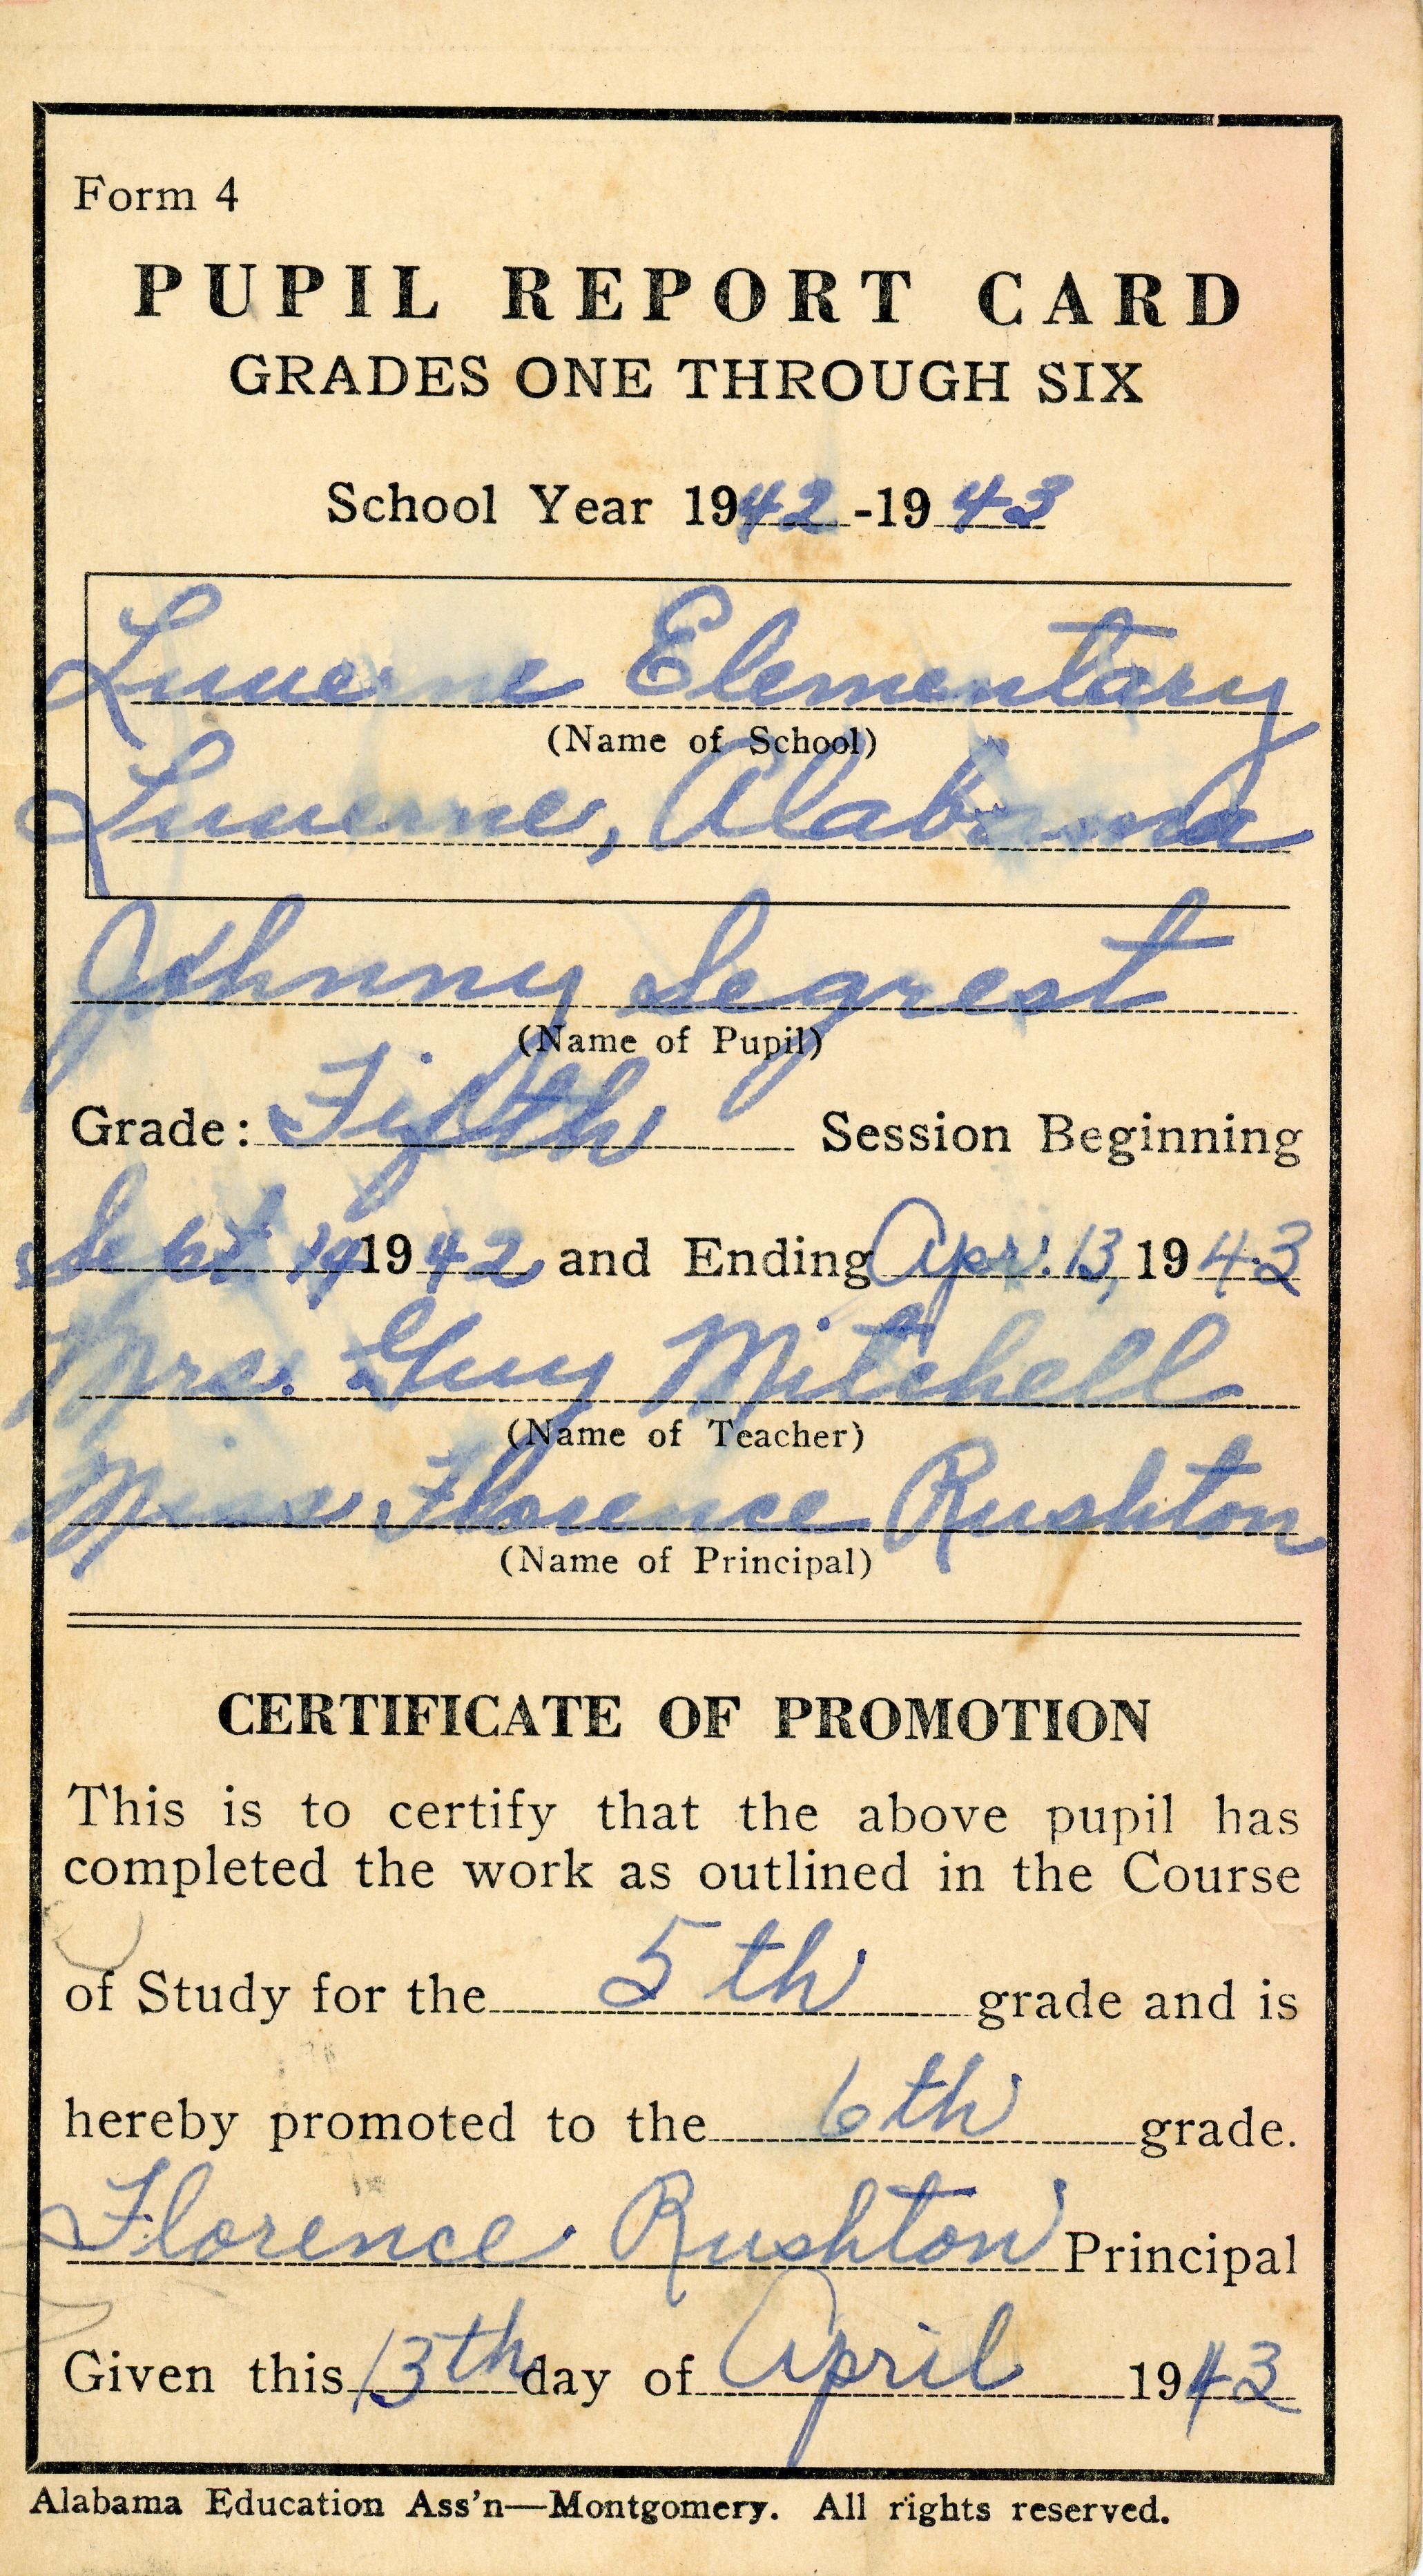 Form 4
PUPIL REPORT CARD
GRADES ONE THROUGH SIX
School Year 1942-1943
Luverne Elementary
(Name of School)
Luverne, Alabama
Johnny Segrest
(Name of Pupil)
Grade: Fifth Session Beginning
1942 and Ending Apr. 13, 1943
Mrs. Guy Mitchell
(Name of Teacher)
Miss Florence Rushton
(Name of Principal)
CERTIFICATE OF PROMOTION
This is to certify that the above pupil has
completed the work as outlined in the Course
of Study for the 5th grade and is
hereby promoted to the 6th grade.
Florence Rushton Principal
Given this 13th day of April 1943
Alabama Education Ass'n—Montgomery. All rights reserved.